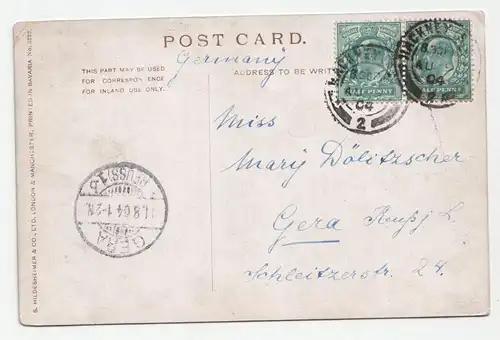 POST CARD.
Germany
THIS PART MAY BE USED
FOR CORRESPONDENCE
FOR INLAND USE ONLY.
ADDRESS TO BE WRIT
HACKNEY
04
2
HACKNEY
04
HALF PENNY
HALF PENNY
Miss
Mary Dölitzscher
Gera Reuß j. L.
Schleitzerstr. 24.
GERA
(REUSS) 1.b
11.8.04. 1-2N.
S. HILDESHEIMER & CO., LTD. LONDON & MANCHESTER, PRINTED IN BAVARIA No.